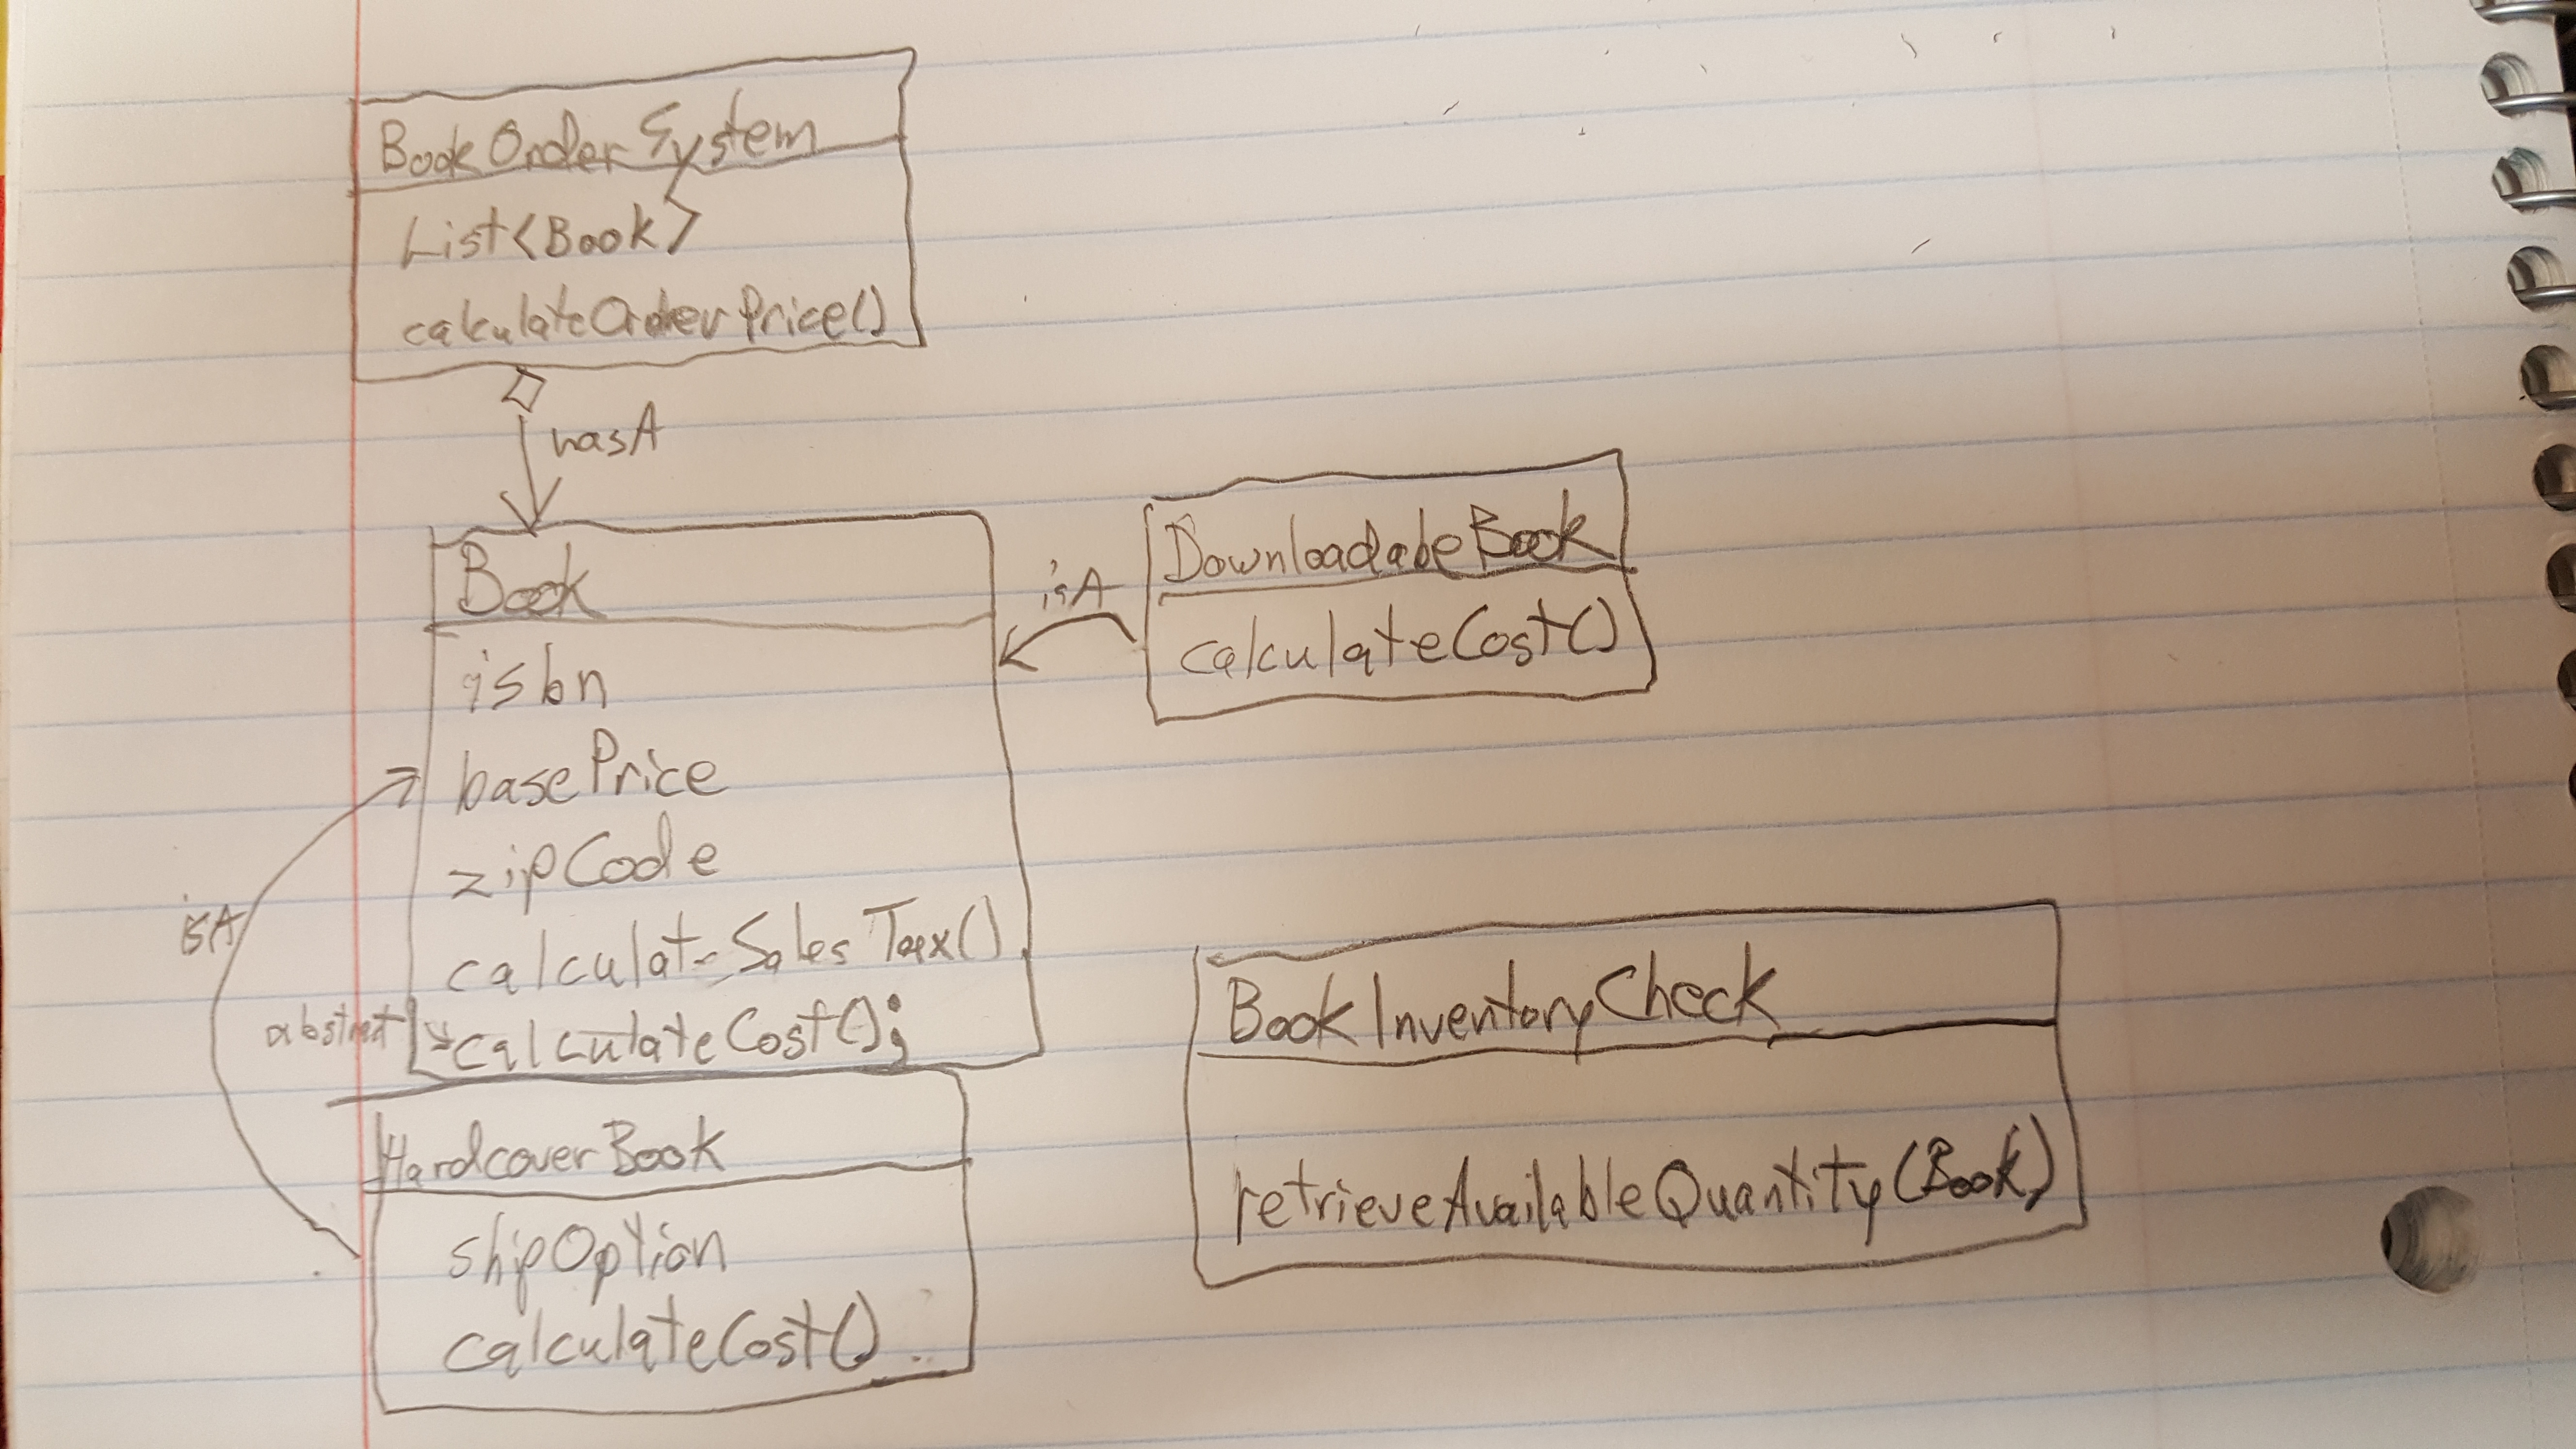 BookOrderSystem
List<Book>
calculateOrderPrice()
hasA
Book
isbn
basePrice
zipCode
calculateSalesTax()
abstract
calculateCost();
isA
HardcoverBook
shipOption
calculateCost()
isA
DownloadabeBook
calculateCost()
BookInventoryCheck
retrieveAvailableQuantity(Book)